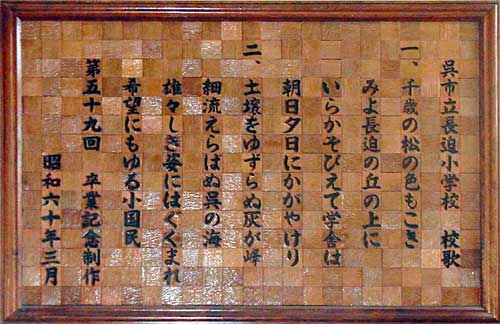 呉市立長迫小学校 校歌
一、千歳の松の色もこき
みよ長迫の丘の上に
いらかそびえて学舎は
朝日夕日にかがやけり
二、土壌をゆずらぬ灰が峰
細流えらばぬ呉の海
雄々しき姿にはぐくまれ
希望にもゆる小国民
第五十九回 卒業記念制作
昭和六十年三月